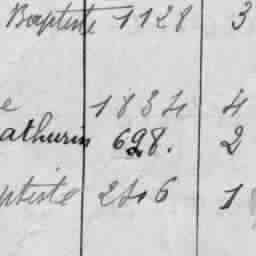 Baptiste 1128 3
e 1834 4
athurin 628. 2
ptiste 1